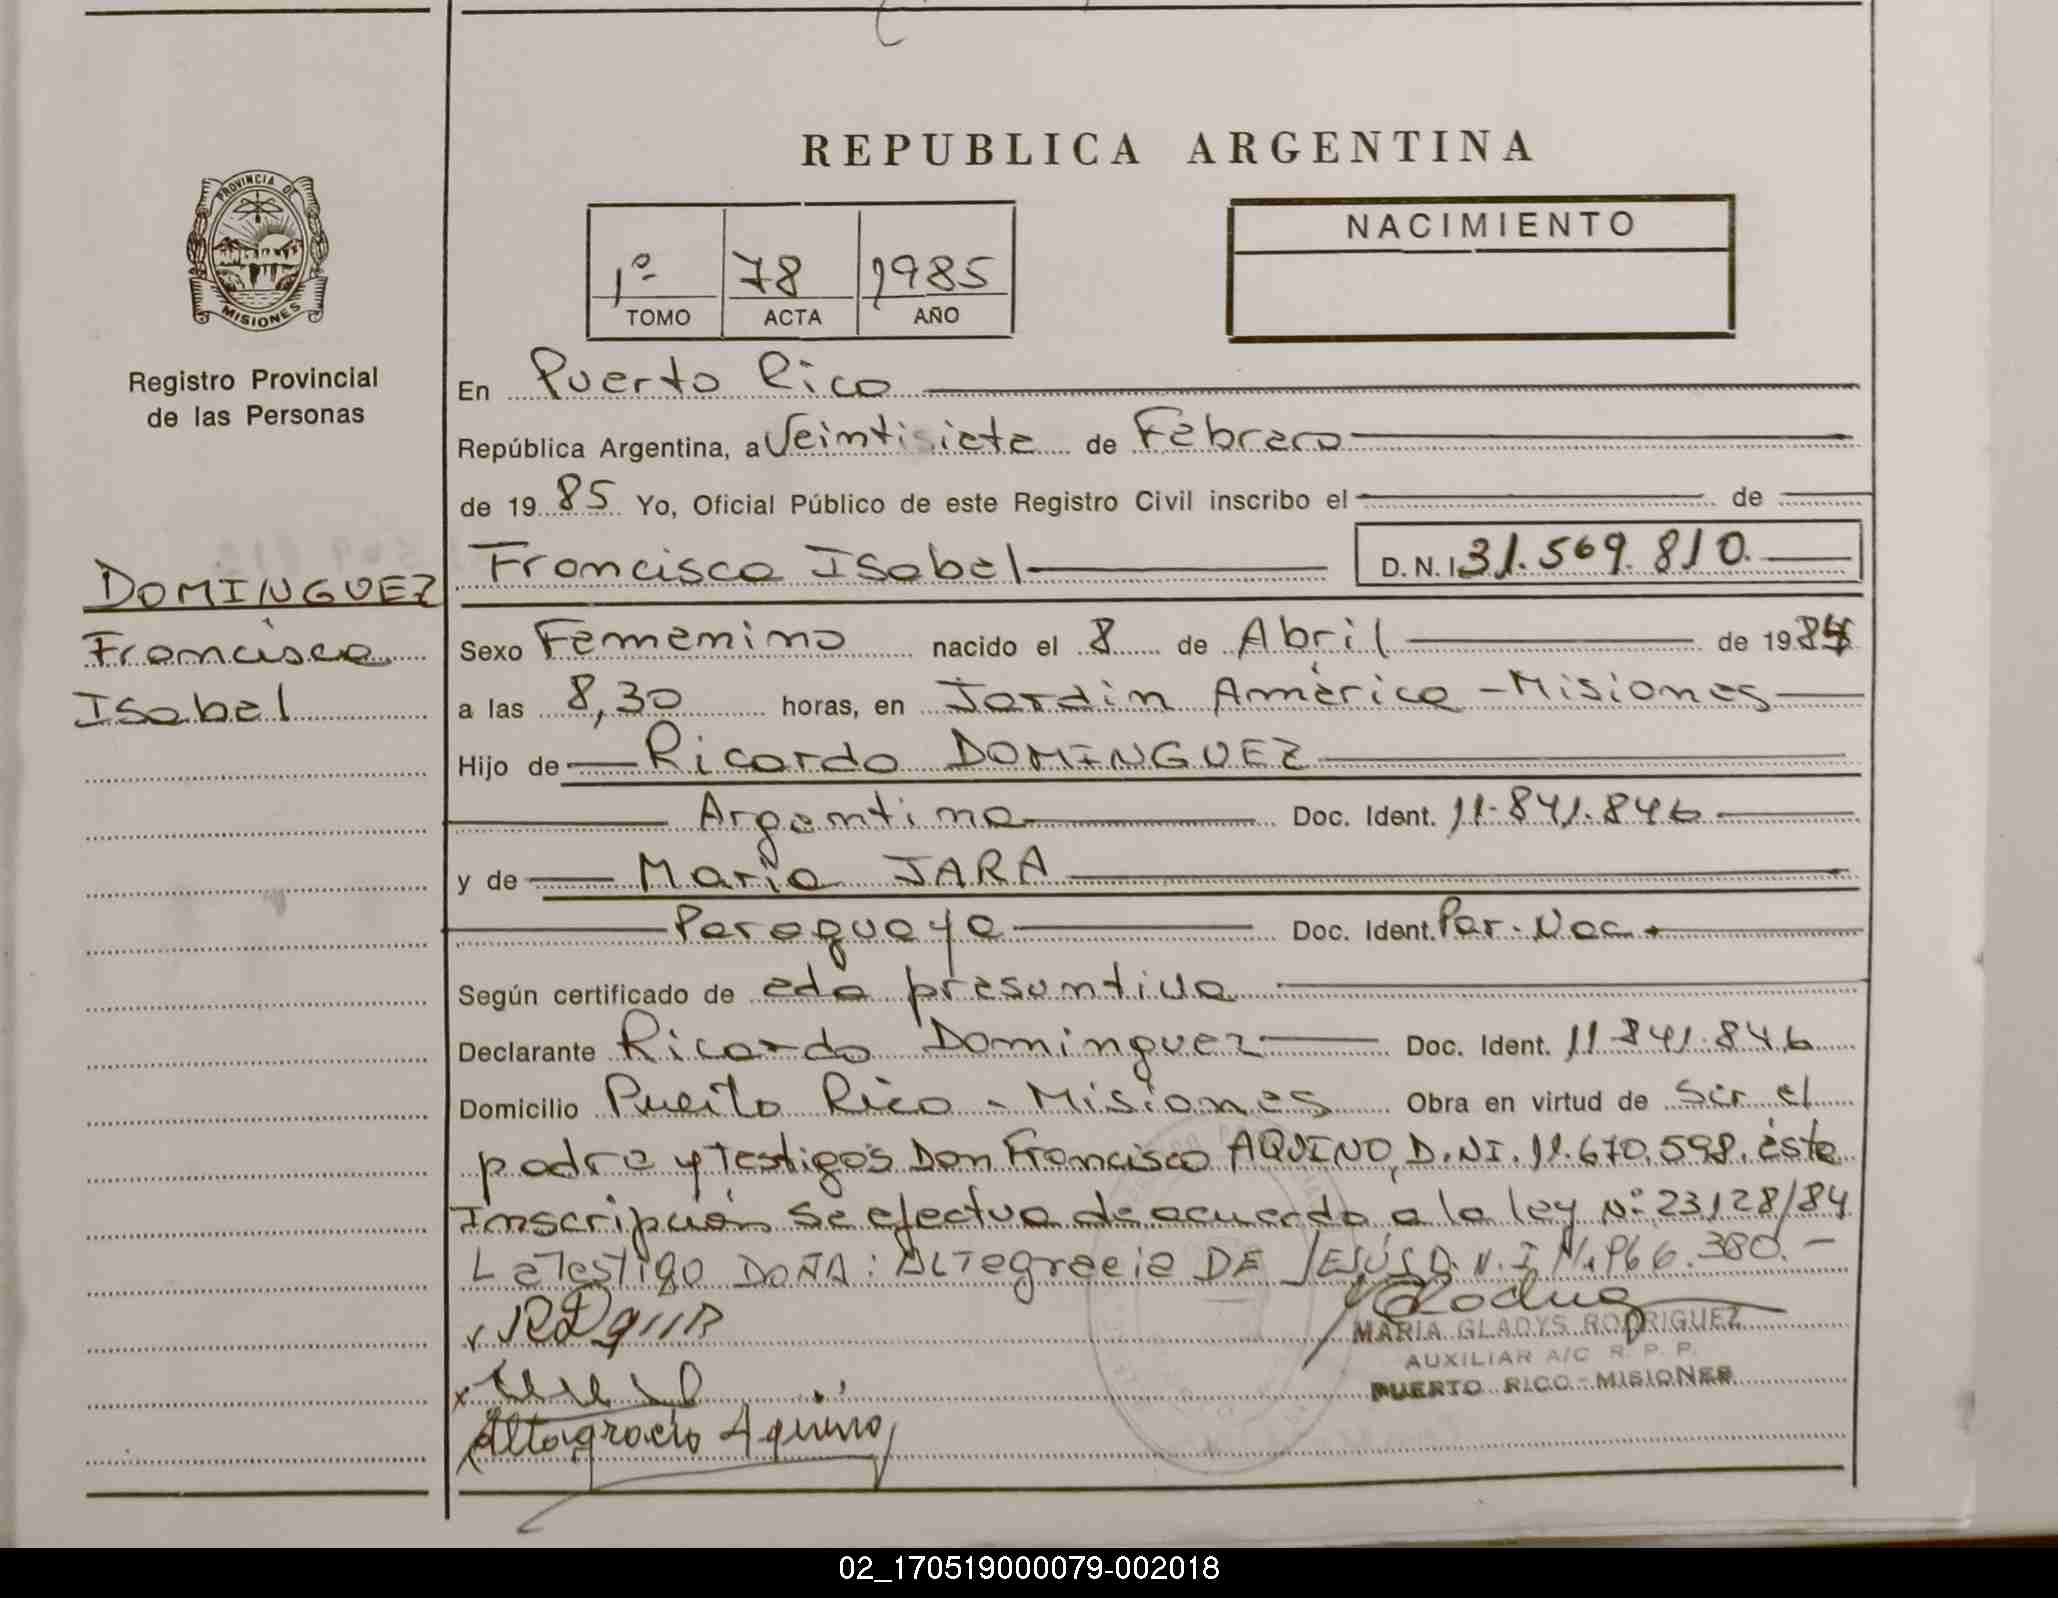 REPUBLICA ARGENTINA
PROVINCIA DE
MISIONES
Registro Provincial
de las Personas
1º 78 1985
TOMO ACTA AÑO
NACIMIENTO
En Puerto Rico
República Argentina, a Veintisiete de Febrero
de 1985 Yo, Oficial Público de este Registro Civil inscribo el de
Francisca Isabel D.N.I 31.569.810
DOMINGUEZ
Francisca
Isabel
Sexo Femenino nacido el 8 de Abril de 1984
a las 8,30 horas, en Jardin América - Misiones
Hijo de Ricardo DOMINGUEZ
Argentina Doc. Ident. 11.841.846
y de Maria JARA
Paraguaya Doc. Ident. Par. Nac.
Según certificado de eda presuntiva
Declarante Ricardo Dominguez Doc. Ident. 11.841.846
Domicilio Puerto Rico - Misiones Obra en virtud de Ser el
padre y testigos Don Francisco AQUINO, D.NI. 11.670.598. èste
Inscripción se efectua de acuerdo a la ley Nº 23128/84
La Testigo DOÑA: ALTagracia DE JESÚS D.N.I 966.380.-
MARIA GLADYS RODRIGUEZ
AUXILIAR A/C R. P. P.
PUERTO RICO - MISIONES
Altagracia Aquino
02_170519000079-002018